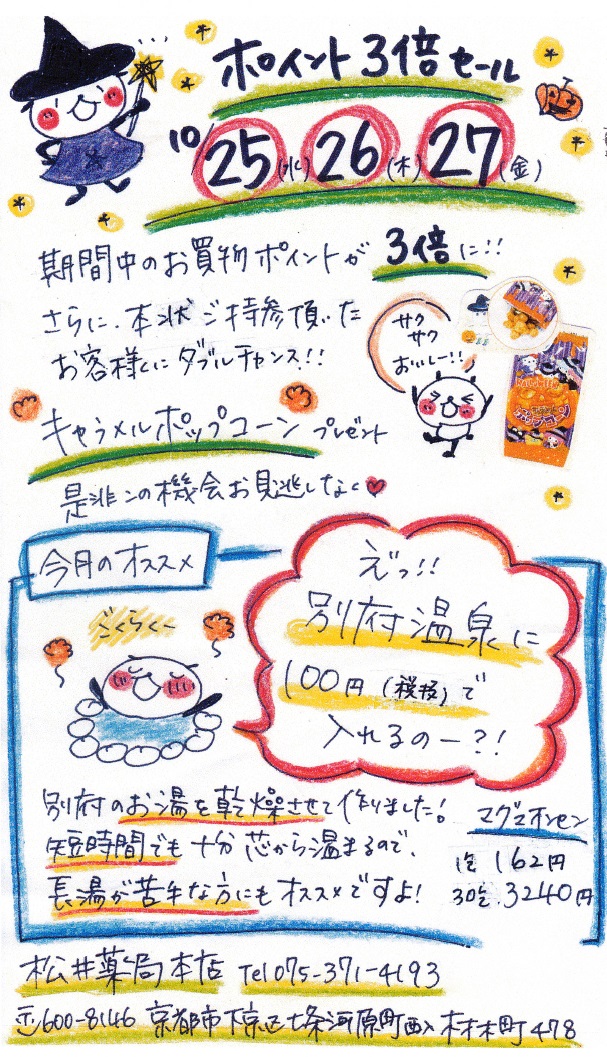 ポイント3倍セール
10/25(水)26(木)27(金)
期間中のお買物ポイントが3倍に!!
さらに、本状ご持参頂いた
お客様にダブルチャンス!!
サク
サク
おいしー!!
キャラメルポップコーン プレゼント
是非この機会お見逃しなく♥
今月のオススメ
ごくらくー
えっ!!
別府温泉に
100円(税抜)で
入れるのー?!
別府のお湯を乾燥させて作りました!
短時間でも十分芯から温まるので、
長湯が苦手な方にもオススメですよ!
マグマオンセン
1包 162円
30包 3240円
松井薬局本店 Tel 075-371-4193
〒600-8146 京都市下京区七条河原町西入材木町478